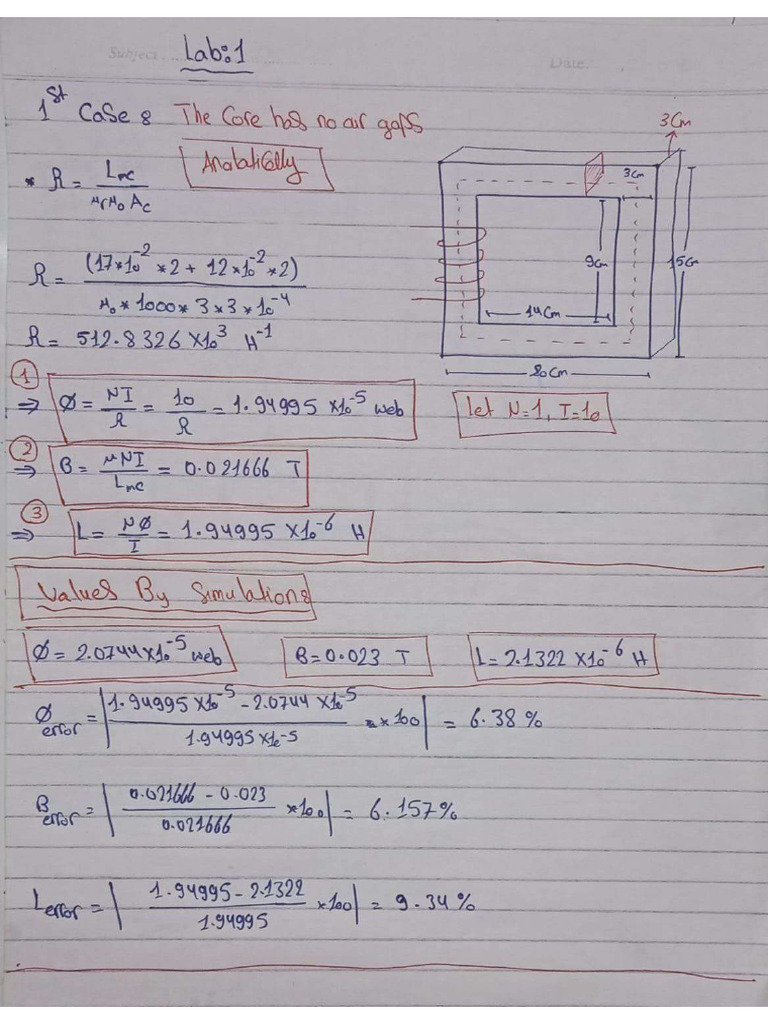 Subject
Lab:1
Date.
1st Case : The Core has no air gaps
Analatically
* R = Lmc / μrμ0 Ac
R = (17*10^-2 *2 + 12*10^-2 *2) / μ0 * 1000 * 3 * 3 * 10^-4
R = 512.8326 X10^3 H^-1
3 Cm
3cm
9cm
15cm
14Cm
20Cm
① ⇒ Φ = NI / R = 10 / R = 1.94995 X10^-5 web
let N=1, I=10
② ⇒ B = μNI / Lmc = 0.021666 T
③ ⇒ L = NΦ / I = 1.94995 X10^-6 H
Values By Simulation:
Φ = 2.0744X10^-5 web
B = 0.023 T
L = 2.1322 X10^-6 H
Φerror = | 1.94995 X10^-5 - 2.0744 X10^-5 / 1.94995 X10^-5 * 100 | = 6.38 %
Berror = | 0.021666 - 0.023 / 0.021666 *100 | = 6.157%
Lerror = | 1.94995 - 2.1322 / 1.94995 *100 | = 9.34 %